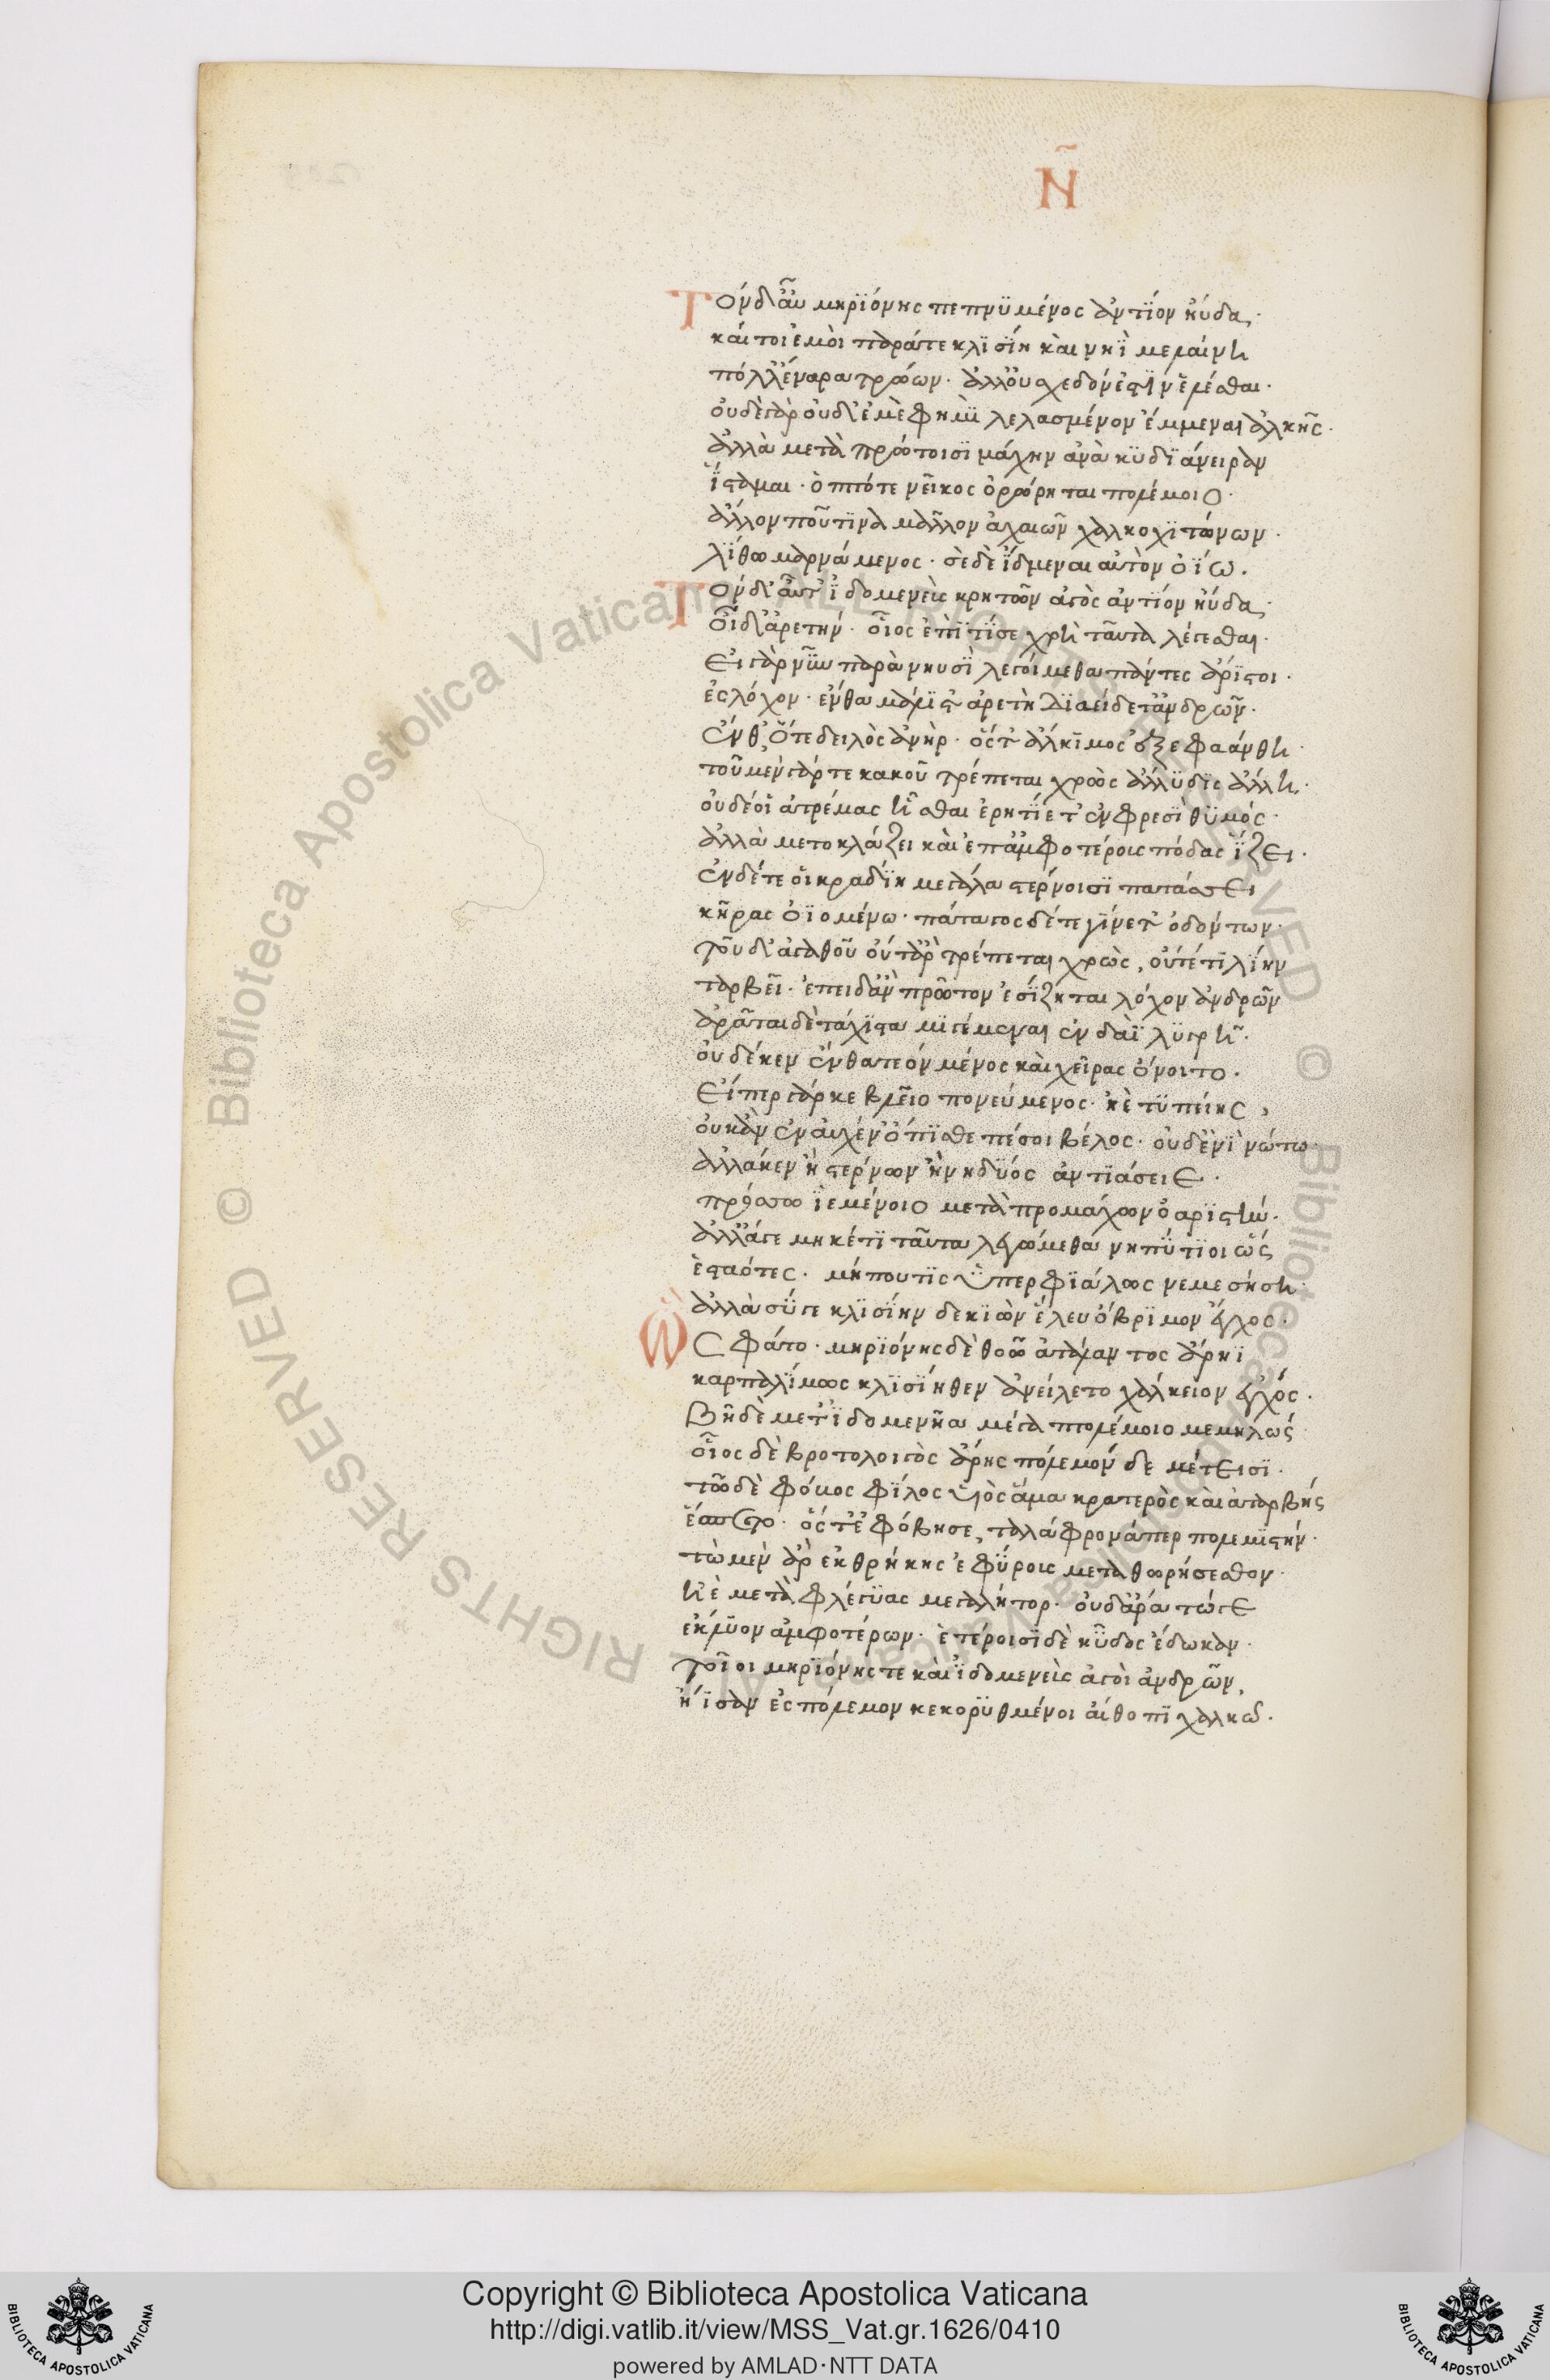 Ν̃
Τὸν δ' ἂυ μηρϊόνης πεπνϋμένος ἀντΐον ἠύδα·
καί τοι ἐμὸι παράτε κλϊσΐη καὶ νηῒ μελαίνη
πόλλ' ἔναρα τρώων· ἀλλ' ὀυ σχεδόν ἐστῒν ἑλέσθαι·
ὀυδὲ γὰρ ὀυδ' ἐμὲ φημῒ λελασμένον ἔμμεναι ἀλκῆς·
ἀλλὰ μετὰ πρώτοισϊ μάχην ἀνὰ κϋδϊάνειραν
ἵσταμαι· ὁππότε νεῖκος ὀρώρηται πολέμοιο·
ἄλλον ποῦ τϊνὰ μᾶλλον ἀχαιῶν χαλκοχϊτώνων·
λΐθω μαρνάμενος· σὲ δὲ ἴδμεναι αὐτὸν ὀΐω.
Τὸν δ' ἂυτ' ἰδομενεὺς κρητῶν ἀγὸς ἀντΐον ἠύδα·
Οἶδ' ἀρετὴν· οἷος ἐσσῒ τΐ σε χρὴ ταῦτα λέγεσθαι·
Εἰ γὰρ νῦν παρὰ νηυσῒ λεγόιμεθα πάντες ἄρϊστοι·
ἐς λόχον· ἔνθα μάλϊστ' ἀρετὴ δϊαείδεται ἀνδρῶν·
Ἔνθ' ὅτε δειλὸς ἀνὴρ· ὅς τ' ἄλκϊμος ἐξεφαάνθη·
τοῦ μὲν γάρ τε κακοῦ τρέπεται χρὼς ἄλλϋδϊς ἄλλη·
ὀυδέ οἱ ἀτρέμας ἧσθαι ἐρητΰετ' ἐν φρεσῒ θϋμός·
ἀλλὰ μετοκλάζει καὶ ἐπ' ἀμφοτέρους πόδας ἵζει·
ἐν δέ τε οἱ κραδΐη μεγάλα στέρνοισϊ πατάσσει
κῆρας ὀϊομένω· πάταγος δέ τε γΐνετ' ὀδόντων·
τοῦ δ' ἀγαθοῦ ὀύτ' ἂρ τρέπεται χρὼς, ὀύτέ τϊ λΐην
ταρβεῖ· ἐπειδὰν πρῶτον ἐσΐζηται λόχον ἀνδρῶν
ἀρᾶται δὲ τάχϊστα μϊγέμεναι ἐν δαῒ λϋγρῆ·
ὀυδέ κεν ἔνθα τεόν μένος καὶ χεῖρας ὄνοιτο·
Εἴπερ γάρ κε βλεῖο πονεύμενος· ἠὲ τϋπείης,
ὀυκ ἂν ἐν ἀυχέν' ὄπϊσθε πέσοι βέλος· ὀυδ' ἐνῒ νώτω·
ἀλλά κεν ἢ στέρνων ἢ νηδΰος ἀντϊάσειε·
πρόσσω ἱεμένοιο μετὰ προμάχων ὀαρϊστὺν·
ἀλλ' ἄγε μηκέτϊ ταῦτα λεγώμεθα νηπΰτϊοι ὣς
ἑσταότες· μήπου τϊς ὑπερφϊάλως νεμεσήση·
ἀλλὰ σΰγε κλϊσΐην δε κϊὼν ἕλευ ὄβρϊμον ἔγχος·
Ὣς φάτο· μηρϊόνης δὲ θοῶ ἀτάλαντος ἄρηϊ
καρπαλΐμως κλϊσΐηθεν ἀνείλετο χάλκειον ἔγχος·
Βῆ δὲ μετ' ἰδομενῆα μέγα πτολέμοιο μεμηλώς·
οἷος δὲ βροτολοιγὸς ἄρης πόλεμόν δε μέτεισϊ·
τῶ δὲ φόβος φΐλος ὑιὸς ἅμα κρατερὸς καὶ ἀταρβής
ἕσπετο· ὅς τ' ἐφόβησε, ταλάφρονάπερ πολεμϊστήν·
τὼ μὲν ἂρ ἐκ θρήκης ἐφΰρους μετὰ θωρήσεσθον·
ἠὲ μετὰ φλέγϋας μεγαλήτορ· ὀυδ' ἄρα τώγε
ἔκλϋον ἀμφοτέρων· ἑτέροισϊ δὲ κῦδος ἔδωκαν·
Τοῖοι μηρϊόνής τε καὶ ἰδομενεὺς ἀγὸι ἀνδρῶν,
ἤϊσαν ἐς πόλεμον κεκορϋθμένοι ἄιθοπϊ χαλκῶ.
Copyright © Biblioteca Apostolica Vaticana
http://digi.vatlib.it/view/MSS_Vat.gr.1626/0410
powered by AMLAD·NTT DATA